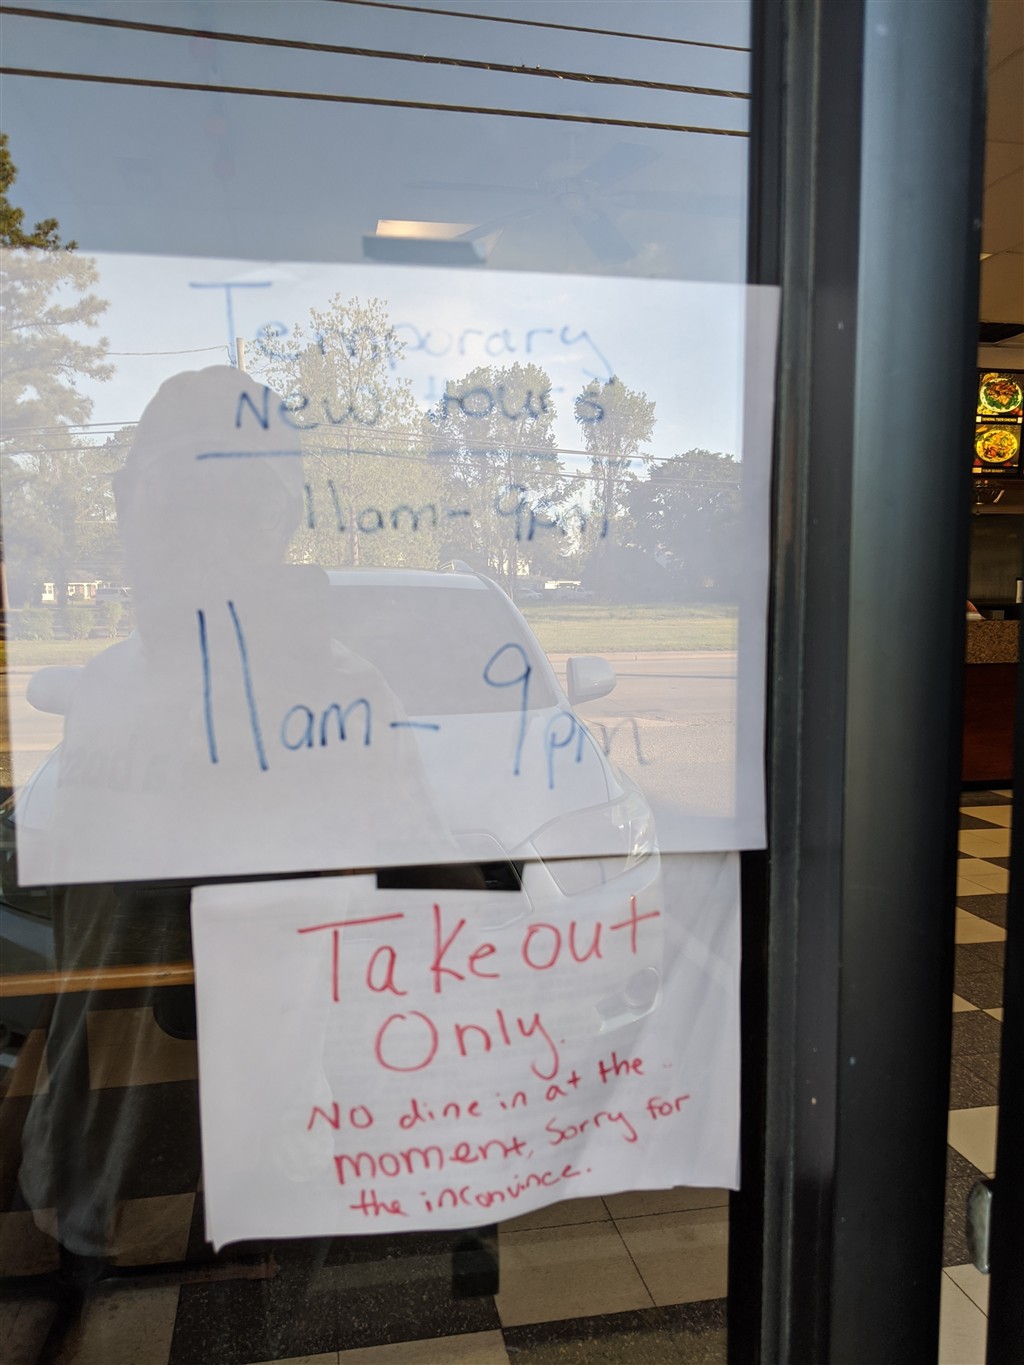 Temporary
New Hours
11am - 9pm
11am - 9pm
Take out
Only.
No dine in at the
moment, Sorry for
the inconvince.